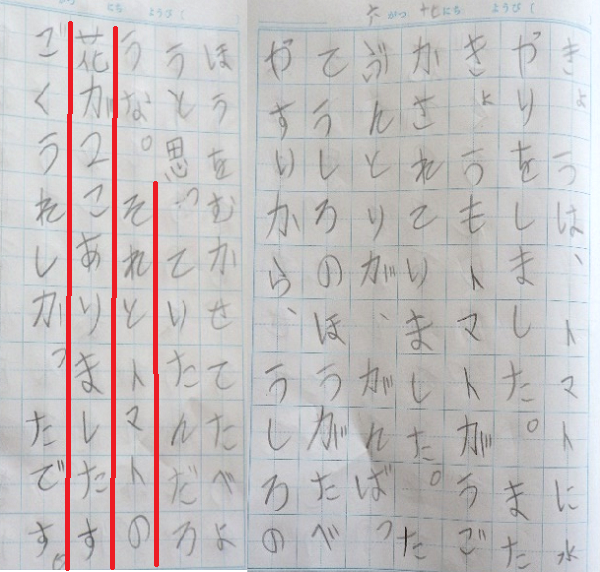 六がつ 十七にち ようび(
きょうは、トマトに水
やりをしました。また
きょうもトマトがうご
かされていました。た
ぶんとりが、がんばっ
てうしろのほうがたべ
やすいから、うしろの
ようび(
ほうをむかせてたべよ
うと思っていたんだろ
うな。それとトマトの
花が2こありましたす
ごくうれしかったです。